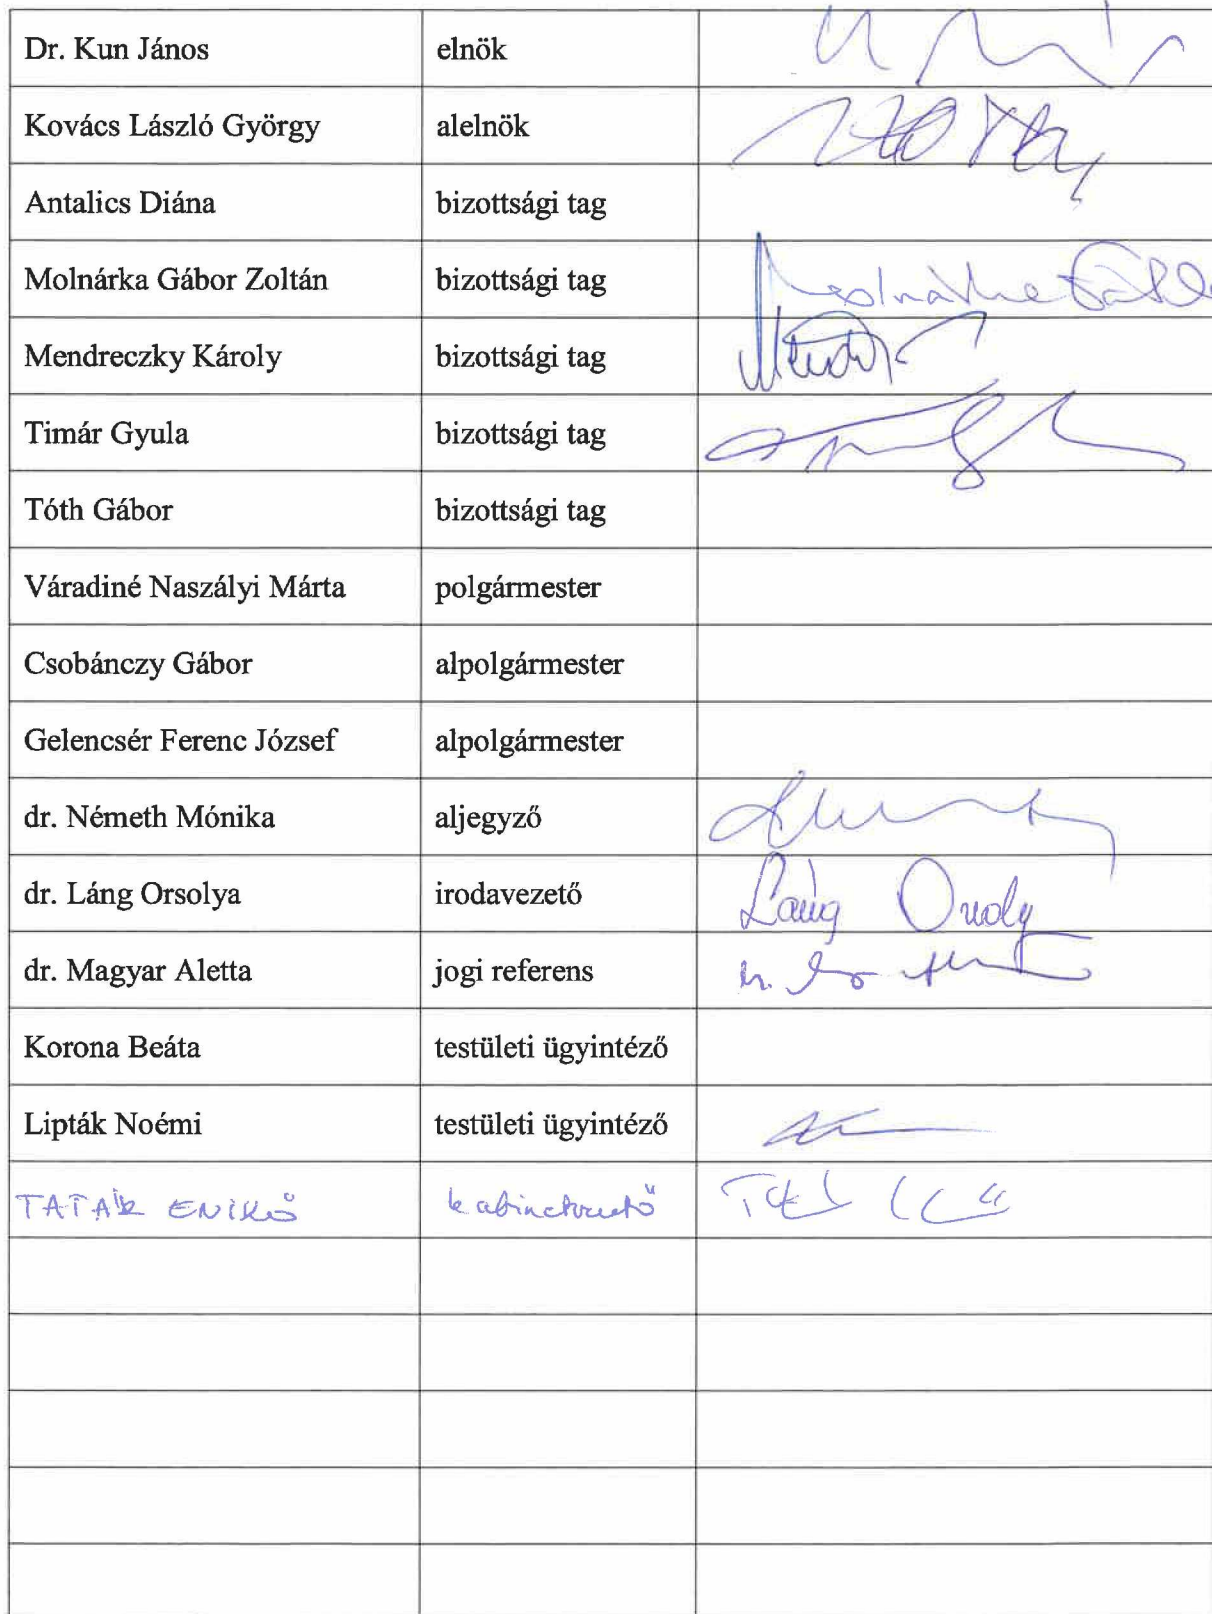 Dr. Kun János elnök
Kovács László György alelnök
Antalics Diána bizottsági tag
Molnárka Gábor Zoltán bizottsági tag
Mendreczky Károly bizottsági tag
Timár Gyula bizottsági tag
Tóth Gábor bizottsági tag
Váradiné Naszályi Márta polgármester
Csobánczy Gábor alpolgármester
Gelencsér Ferenc József alpolgármester
dr. Németh Mónika aljegyző
dr. Láng Orsolya irodavezető Láng
dr. Magyar Aletta jogi referens
Korona Beáta testületi ügyintéző
Lipták Noémi testületi ügyintéző
TATÁR ENIKŐ kabinetvezető